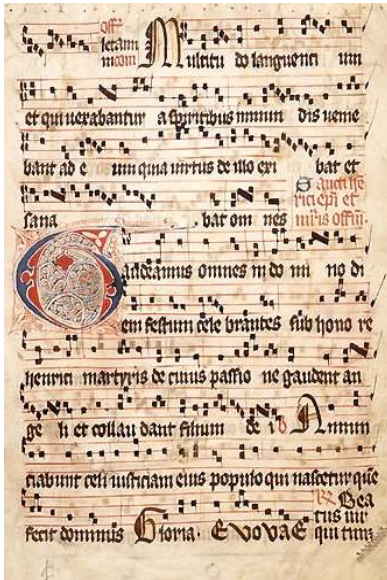 offm
letami
ni com Multitu do languenti um
et qui uexabantur a spiritibus inmun dis uenie
bant ad e um quia uirtus de illo exi bat et
sana bat om nes
Sancti hen
rici epi et
mris offm.
Gaudeamus omnes in do mi no di
em festum cele brantes sub hono re
henrici martyris de cuius passio ne gaudent an
ge li et collau dant filium de i Annun
ciabunt celi iusticiam eius populo qui nascetur que
fecit dominus Gloria. Evovae
Bea
tus uir
qui tim